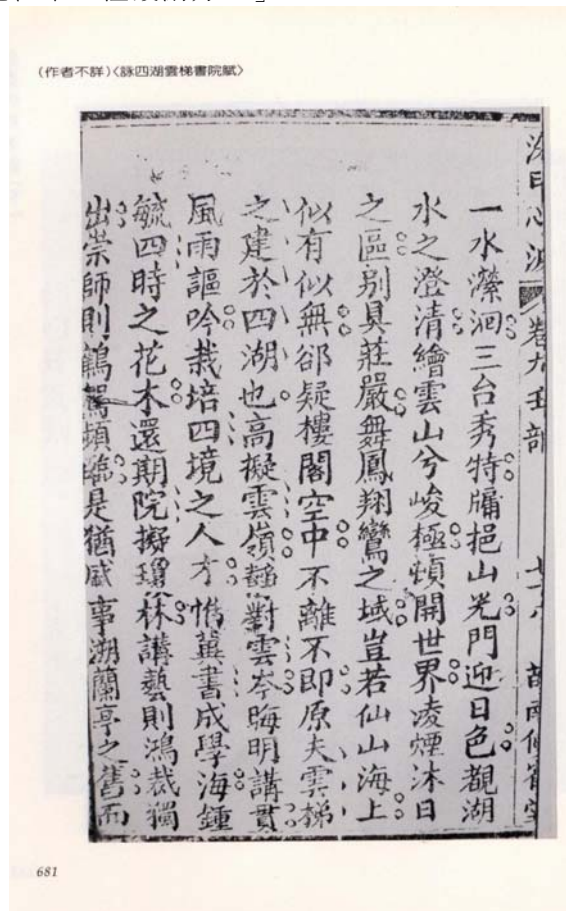 (作者不詳)〈詠四湖雲梯書院賦〉
卷九 壬部
一水瀠洄三台秀特牖挹山光門迎日色觀湖
水之澄清繪雲山兮峻極頓開世界凌煙沐日
之區別具莊嚴舞鳳翔鸞之域豈若仙山海上
似有似無卻疑樓閣空中不離不即原夫雲梯
之建於四湖也高擬雲嶺靜對雲岑晦明講貫
風雨謳吟栽培四境之人才惟冀書成學海鍾
毓四時之花木還期院擬瓊林講藝則鴻裁獨
出崇師則鶴駕頻臨是猶感事溯蘭亭之舊而
681